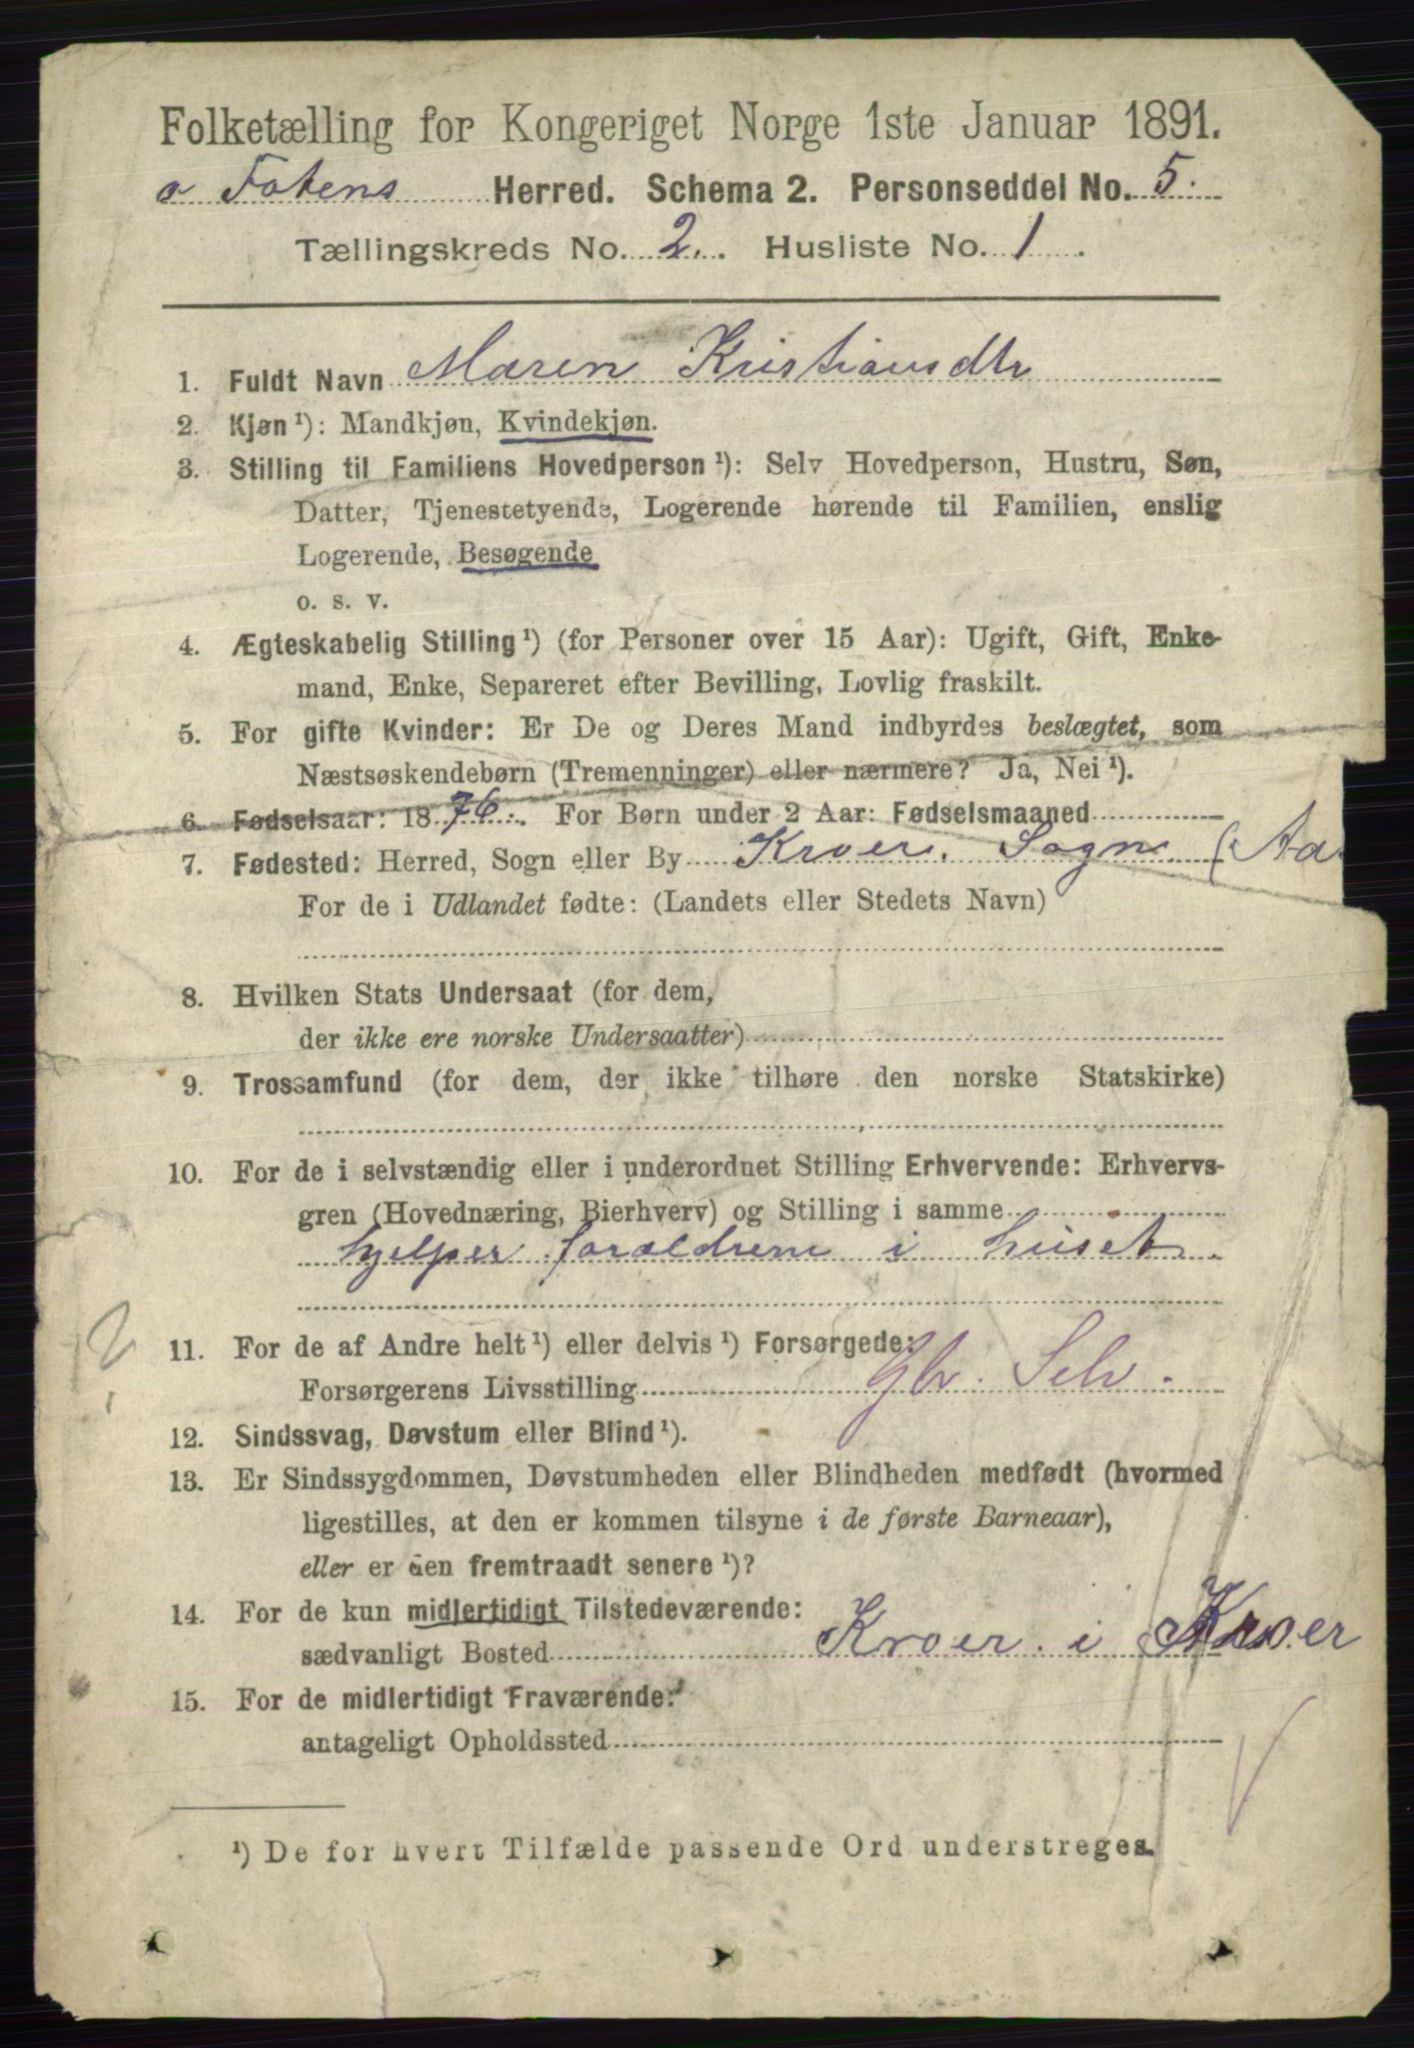 Folketælling for Kongeriget Norge 1ste Januar 1891.
Herred. Schema 2. Personseddel No. 5.
Tællingskreds No. 2. Husliste No. 1
1. Fuldt Navn Maren Kristiansdtr
2. Kjøn ¹): Mandkjøn, Kvindekjøn.
3. Stilling til Familiens Hovedperson ¹): Selv Hovedperson, Hustru, Søn,
Datter, Tjenestetyende, Logerende hørende til Familien, enslig
Logerende, Besøgende
o. s. v.
4. Ægteskabelig Stilling ¹) (for Personer over 15 Aar): Ugift, Gift, Enke-
mand, Enke, Separeret efter Bevilling, Lovlig fraskilt.
5. For gifte Kvinder: Er De og Deres Mand indbyrdes beslægtet, som
Næstsøskendebørn (Tremenninger) eller nærmere? Ja, Nei ¹).
6. Fødselsaar: 1876. For Børn under 2 Aar: Fødselsmaaned
7. Fødested: Herred, Sogn eller By Kroer. Sogn (Aa
For de i Udlandet fødte: (Landets eller Stedets Navn)
8. Hvilken Stats Undersaat (for dem,
der ikke ere norske Undersaatter)
9. Trossamfund (for dem, der ikke tilhøre den norske Statskirke)
10. For de i selvstændig eller i underordnet Stilling Erhvervende: Erhvervs-
gren (Hovednæring, Bierhverv) og Stilling i samme
hjelper foræeldrene i huset.
11. For de af Andre helt ¹) eller delvis ¹) Forsørgede:
Forsørgerens Livsstilling Gbr. Selv.
12. Sindssvag, Døvstum eller Blind ¹).
13. Er Sindssygdommen, Døvstumheden eller Blindheden medfødt (hvormed
ligestilles, at den er kommen tilsyne i de første Barneaar),
eller er den fremtraadt senere ¹)?
14. For de kun midlertidigt Tilstedeværende:
sædvanligt Bosted Kroer i Kroer
15. For de midlertidigt Fraværende:
antageligt Opholdssted
¹) De for hvert Tilfælde passende Ord understreges.